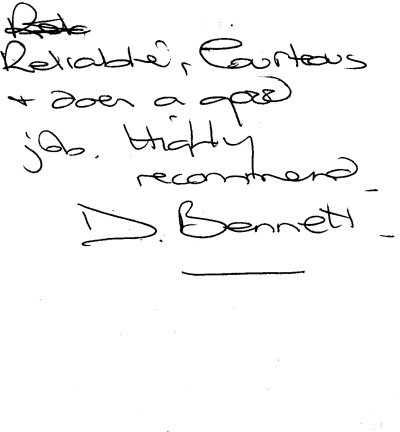 Reliable, Courteous
+ does a good
job. Highly
recommend
D. Bennett